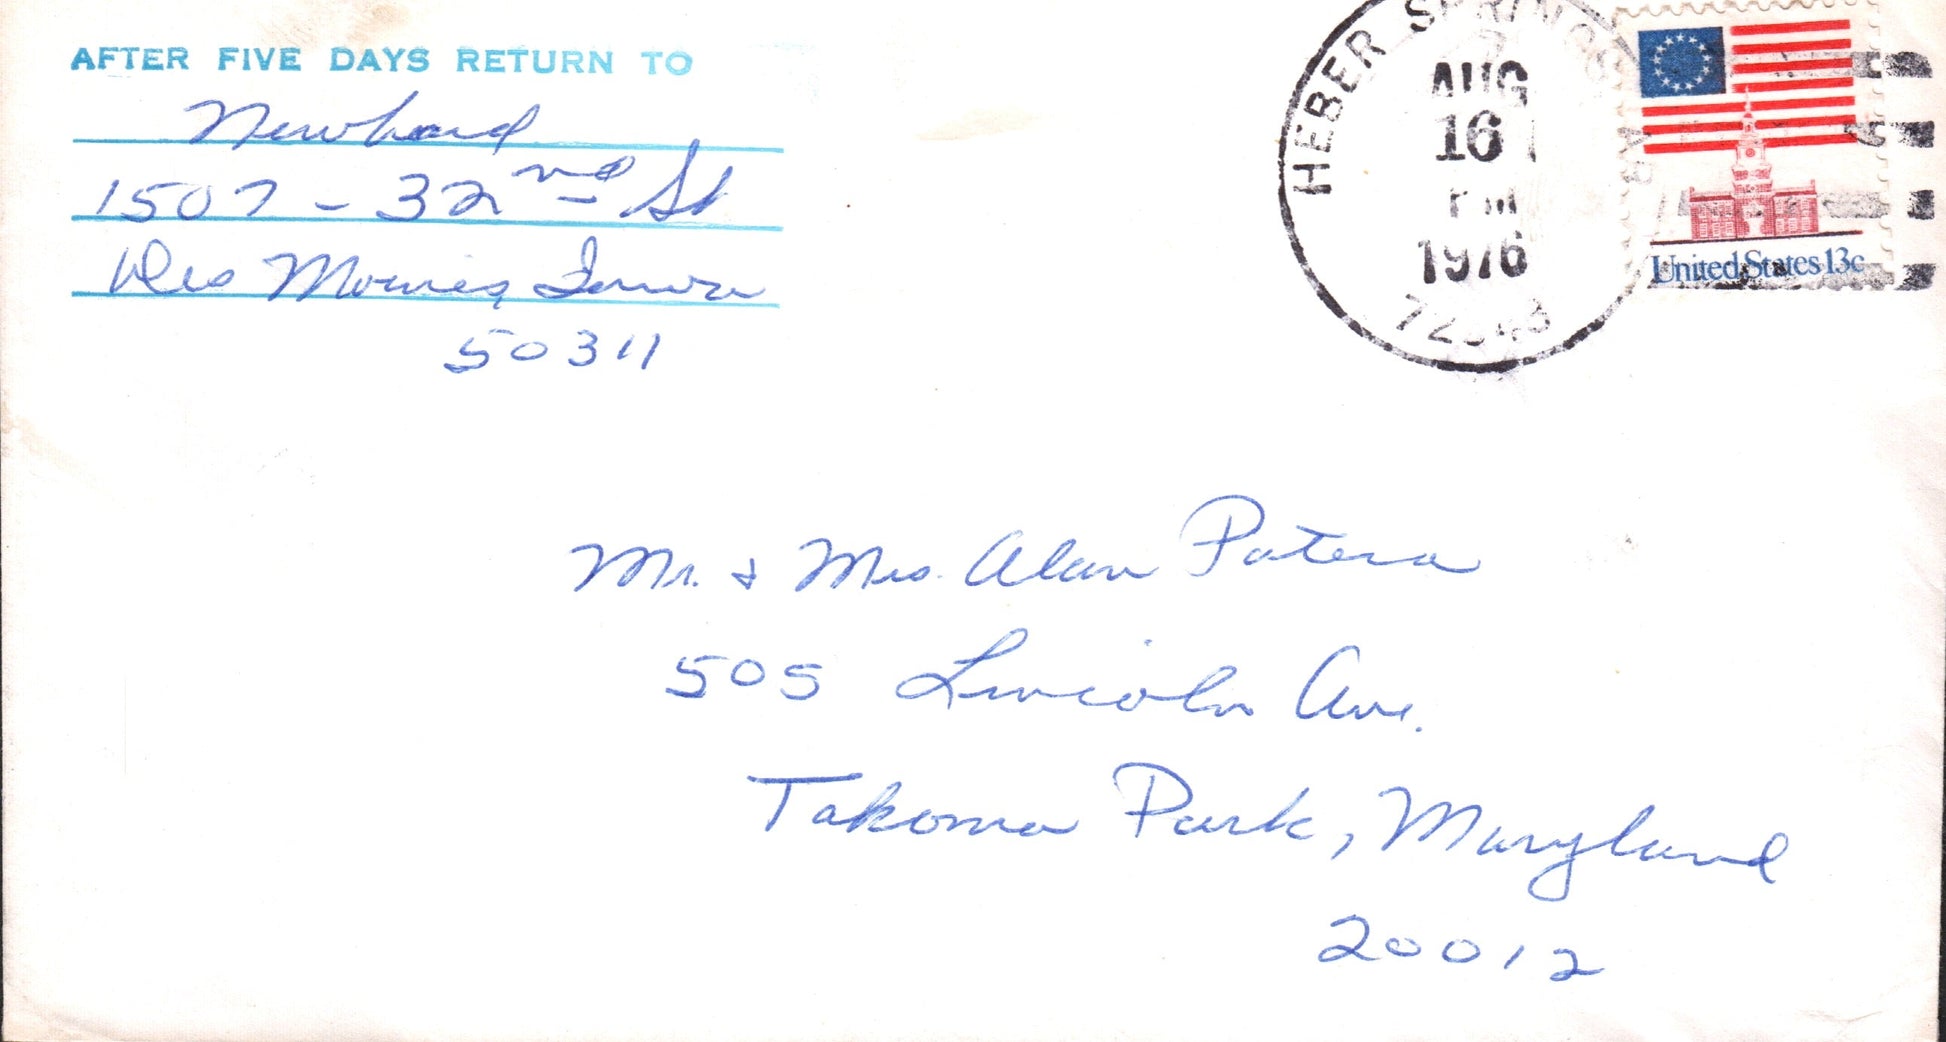 AFTER FIVE DAYS RETURN TO
Newhard
1507 - 32nd St
Des Moines, Iowa
50311
HEBER SPRINGS AR
AUG
16
PM
1976
72543
United States 13c
Mr. & Mrs. Alan Patera
505 Lincoln Ave.
Takoma Park, Maryland
20012